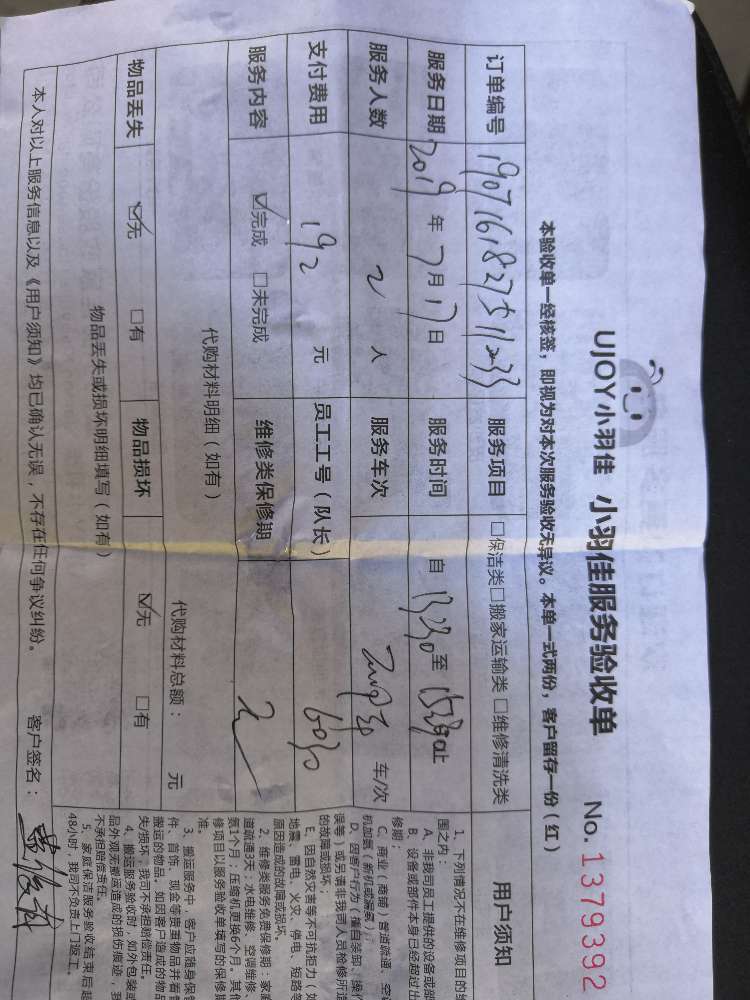 UJOY小羽佳 小羽佳服务验收单 No. 1379392
本验收单一经核签，即视为对本次服务验收无异议。本单一式两份，客户留存一份（红）
订单编号 服务项目 □保洁类□搬家运输类 □维修清洗类
服务日期 2019 年 7 月 17 日 服务时间 自 13:30 至 止
服务人数 2 人 服务车次 车/次
支付费用 192 元 员工工号（队长） 6030
服务内容 ☑完成 □未完成 维修类保修期 无
代购材料明细（如有） 代购材料总额： 元
物品丢失 ☑无 □有 物品损坏 ☑无 □有
物品丢失或损坏明细填写（如有）
本人对以上服务信息以及《用户须知》均已确认无误，不存在任何争议纠纷。 客户签名：
用户须知
1、下列情况不在维修项目的
围之内：
A、非我司员工提供的设备或部
B、设备或部件本身已经超过出
修期；
C、商业（商铺）管道疏通、空
机加氨（新机或漏氨）；
D、因客户行为（擅自装卸、操作
误等）或另请非我司人员检修所造
的故障或损坏；
E、因自然灾害等不可抗拒力（如
地震、雷电、火灾、停电、短路等
原因造成的故障或损坏。
2、维修类服务免费保修期：家庭
道疏通3天；水电维修、空调维修、
氨1个月；压缩机更换6个月。其他
修项目以服务验收单填写的保修期
准。
3、搬运服务中，客户应随身保
件、首饰、现金等贵重物品并看管
搬运的物品，如因客户造成的物品
失/损坏，我司不承担赔偿责任。
4、搬运服务验收时，如外包装或
品外观无搬运造成的损伤痕迹，我
不承担赔偿责任。
5、家庭保洁服务验收结束后超
48小时，我司不负责上门返工。